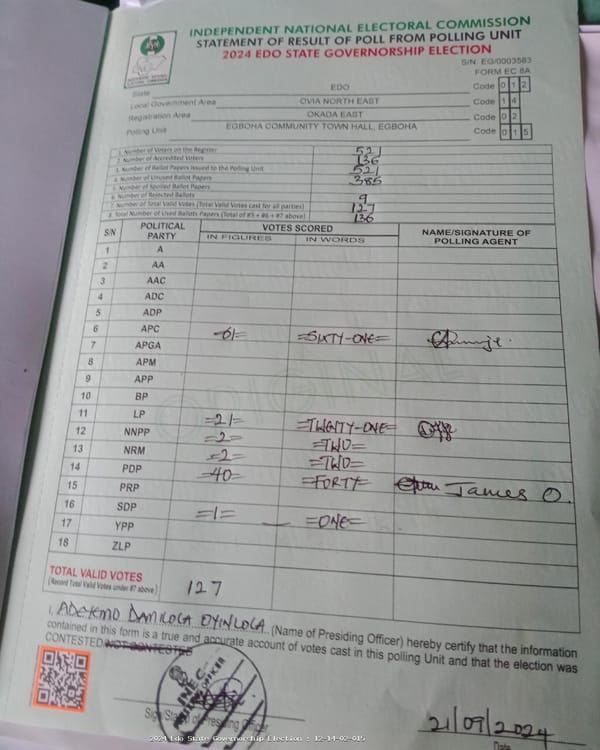 INDEPENDENT NATIONAL ELECTORAL COMMISSION
STATEMENT OF RESULT OF POLL FROM POLLING UNIT
2024 EDO STATE GOVERNORSHIP ELECTION
S/N: EG/0003583
FORM EC 8A
State EDO Code 0 1 2
Local Government Area OVIA NORTH EAST Code 1 4
Registration Area OKADA EAST Code 0 2
Polling Unit EGBOHA COMMUNITY TOWN HALL, EGBOHA Code 0 1 5
1. Number of Voters on the Register 521
2. Number of Accredited Voters 136
3. Number of Ballot Papers Issued to the Polling Unit 521
4. Number of Unused Ballot Papers 385
5. Number of Spoiled Ballot Papers
6. Number of Rejected Ballots 9
7. Number of Total Valid Votes (Total Valid Votes cast for all parties) 127
8. Total Number of Used Ballots Papers (Total of #5 + #6 + #7 above) 136
S/N POLITICAL PARTY VOTES SCORED NAME/SIGNATURE OF POLLING AGENT
IN FIGURES IN WORDS
1 A
2 AA
3 AAC
4 ADC
5 ADP
6 APC =61= =SIXTY-ONE=
7 APGA
8 APM
9 APP
10 BP
11 LP =21= =TWENTY-ONE=
12 NNPP =2= =TWO=
13 NRM =2= =TWO=
14 PDP =40= =FORTY= James O.
15 PRP
16 SDP =1= =ONE=
17 YPP
18 ZLP
ORIGINAL
TOTAL VALID VOTES
(Record Total Valid Votes under #7 above) 127
I, ADEYEMO DAMILOLA OYINLOLA (Name of Presiding Officer) hereby certify that the information
contained in this form is a true and accurate account of votes cast in this polling Unit and that the election was
CONTESTED/NOT CONTESTED
INEC
Presiding Officer
21/09/2024
Date
2024 Edo State Governorship Election : 12-14-02-015